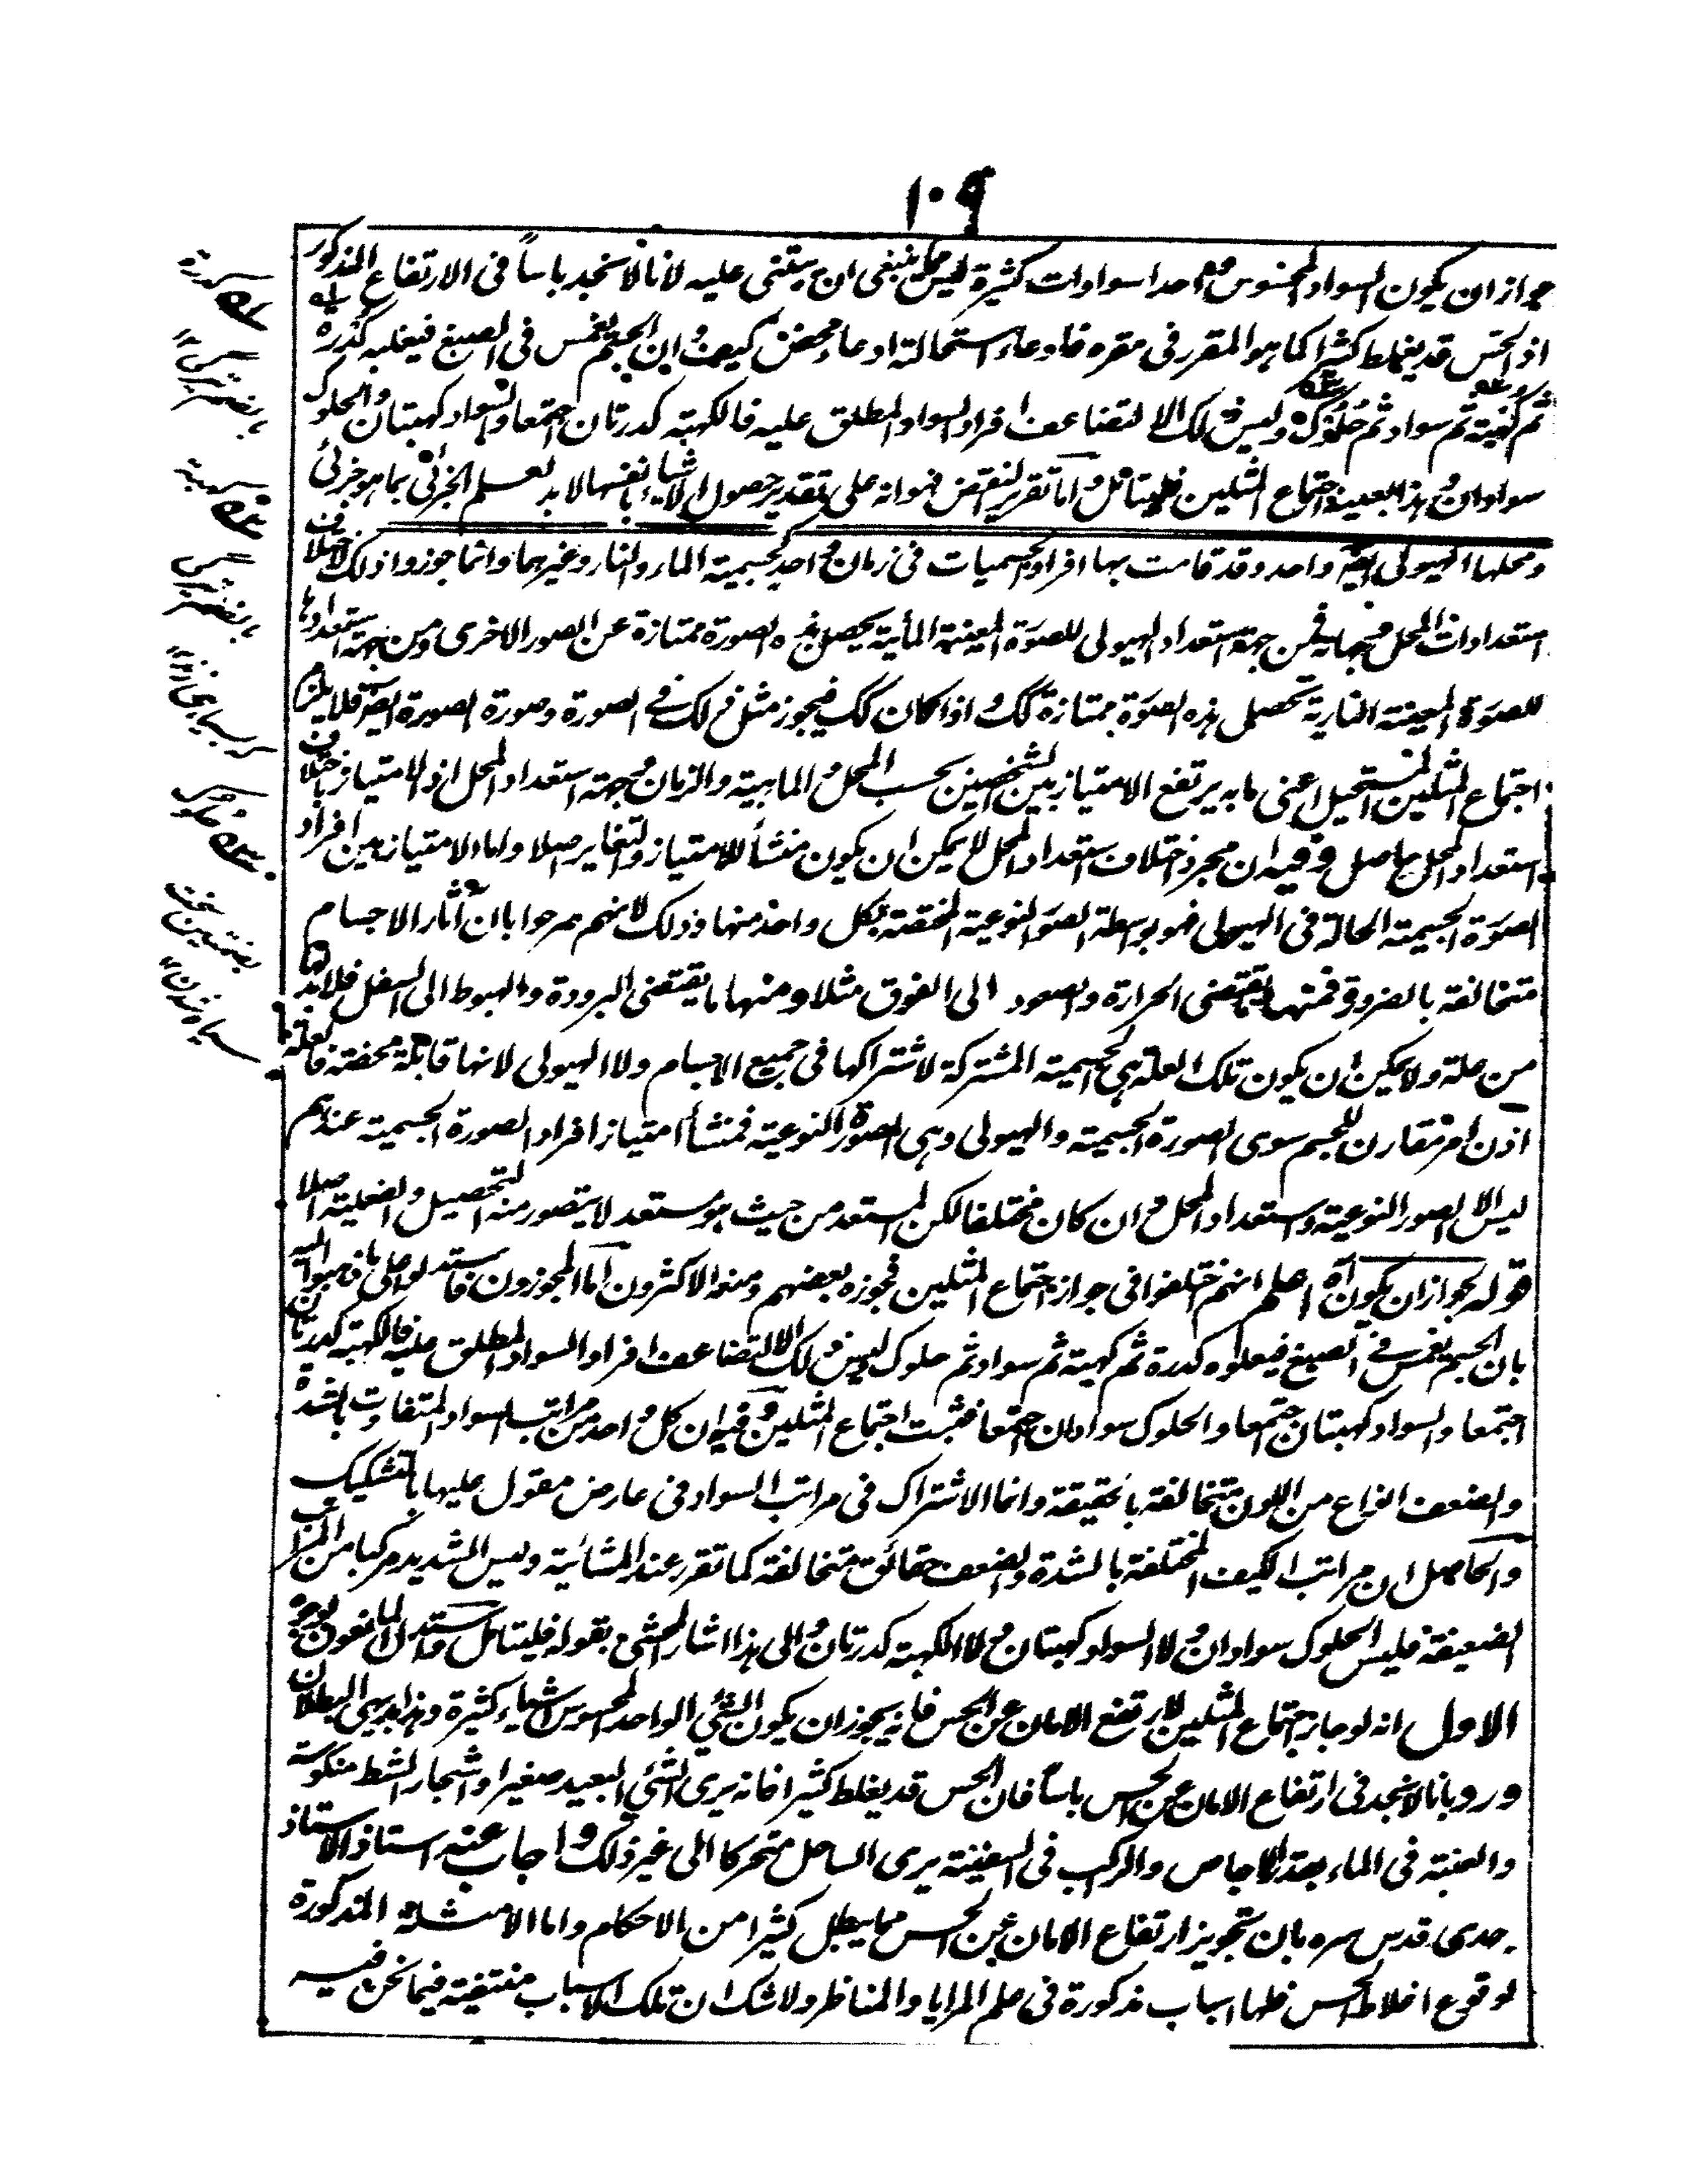 ١٠٩
جواز ان يكون السواد المحسوس واحدا سوادات كثيرة ليس مما ينبغى ان يبتنى عليه لانا لا نجد باسا فى الارتفاع المذكور
اذ الحس قد يغلط كثيرا كما هو المقرر فى مقره فادعاء استحالته ادعاء محض كيف وان الجسم يغمس فى الصبغ فيغلبه كُدرة
ثم كُهبة ثم سواد ثم حُلُوك وليس ذلك الا لتضاعف افراد السواد المطلق عليه فالكهبة كدرتان اجتمعا والسواد كهبتان والحلوك
سوادان وهذا بعينه اجتماع المثلين فليتامل واما تقرير النقض فهو انه على تقدير حصول الاشياء بانفسها لا بد لعلم الجزئى بما هو جزئى
ومحلها الهيولى ايضا واحد وقد قامت بها افراد الجسميات فى زمان واحد كجسمية الماء والنار وغيرهما وانما جوزوا ذلك لاختلاف
استعدادات المحل وجهاته فمن جهة استعداد الهيولى للصورة المعينة المائية يحصل هذه الصورة ممتازة عن الصور الاخرى ومن جهة استعدادها
للصورة المعينة النارية تحصل هذه الصورة ممتازة كك واذا كان كك فيجوز مثل ذلك فى الصورة وصورة الصورة ايضا فلا يلزم
اجتماع المثلين المستحيل اعنى ما به يرتفع الامتياز بين الشخصين بحسب المحل والماهية والزمان وجهة استعداد المحل اذ الامتياز باختلاف
استعداد المحل حاصل وفيه ان مجرد اختلاف استعداد المحل لا يمكن ان يكون منشأ للامتياز والتغاير اصلا واما الامتياز بين افراد
الصورة الجسمية الحالة فى الهيولى فهو بوسطة الصور النوعية المختصة بكل واحد منها وذلك لانهم صرحوا بان آثار الاجسام
متخالفة بالضرورة فمنها ما يقتضى الحرارة والصعود الى الفوق مثلا ومنها ما يقتضى البرودة والهبوط الى السفل فلا بد لها
من علة ولا يمكن ان يكون تلك العلة هى الجسمية المشتركة لاشتراكها فى جميع الاجسام ولا الهيولى لانها قابلة محضة فالعلة لها
اذن امر مقارن للجسم سوى الصورة الجسمية والهيولى وهى الصورة النوعية فمنشأ امتياز افراد الصورة الجسمية عندهم
ليس الا الصور النوعية واستعداد المحل وان كان مختلفا لكن المستعد من حيث هو مستعد لا يتصور منه التحصيل والفعلية اصلا
قوله لجواز ان يكون آه اعلم انهم اختلفوا فى جواز اجتماع المثلين فجوزه بعضهم ومنعه الاكثرون اما المجوزون فاستدلوا على ما ذهبوا اليه
بان الجسم يغمس فى الصبغ فيعلوه كدرة ثم كهبة ثم سواد ثم حلوك ليس ذلك الا لتضاعف افراد السواد المطلق عليه فالكهبة كدرتان
اجتمعا والسواد كهبتان اجتمعا والحلوك سوادان اجتمعا فثبت اجتماع المثلين وفيه ان كل واحد من مراتب السواد المتفاوت بالشدة
والضعف انواع من اللون متخالفة بالحقيقة وانما الاشتراك فى مراتب السواد فى عارض مقول عليها بالتشكيك
والحاصل ان مراتب الكيف المختلفة بالشدة والضعف حقائق متخالفة كما تقرر عند المشائية وليس الشديد مركبا من المراتب
الضعيفة فليس الحلوك سوادان ولا السواد كهبتان ولا الكهبة كدرتان والى هذا اشار المحشى بقوله فليتامل واستدل المانعون بوجوه
الاول انه لو جاز اجتماع المثلين لارتفع الامان عن الحس فانه يجوز ان يكون الشئ الواحد المحسوس اشياء كثيرة وهذا بديهى البطلان
ورد بانا لا نجد فى ارتفاع الامان عن الحس باسا فان الحس قد يغلط كثيرا فانه يرى الشئ البعيد صغيرا واشجار الشط منكوسة
والعنبة فى الماء بقدر الاجاص والراكب فى السفينة يرى الساحل متحركا الى غير ذلك واجاب عنه استاذ الاستاذ
جدى قدس سره بان تجويز ارتفاع الامان عن الحس مما يبطل كثيرا من الاحكام واما الامثلة المذكورة
لوقوع اغلاط الحس فلها اسباب مذكورة فى علم المرايا والمناظر ولا شك ان تلك الاسباب منتفية فيما نحن فيه
كدرة
بالضم تيرگى
كهبة
بالضم تيرگى
حلوك
بضمتين سخت
سياه شدن